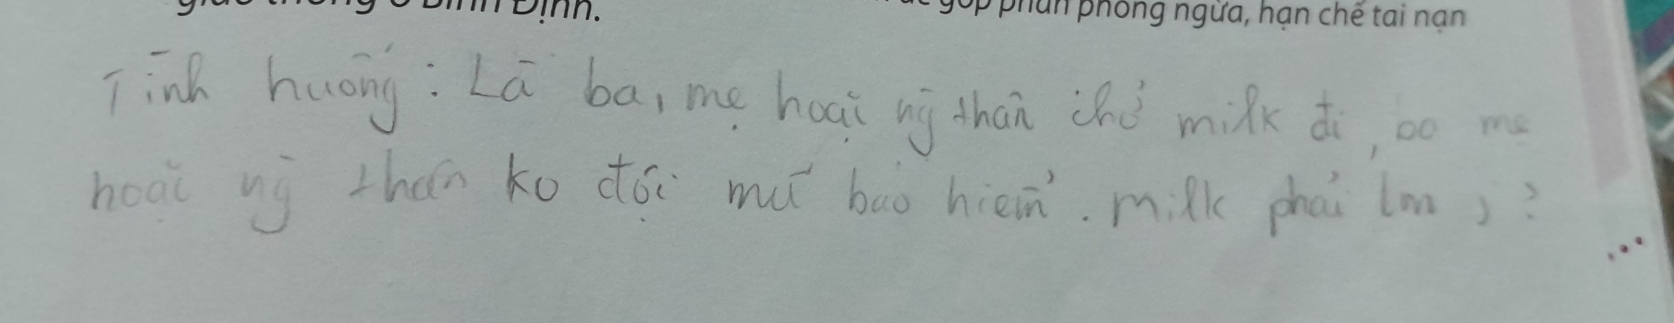 giao thông ở Bình Định.
góp phần phòng ngừa, hạn chế tai nạn
Tình huống: Là ba, mẹ hoặc ng thân chở milk đi, bo mẹ
hoặc ng thân ko đội mũ bảo hiểm. milk phải lm j?
...